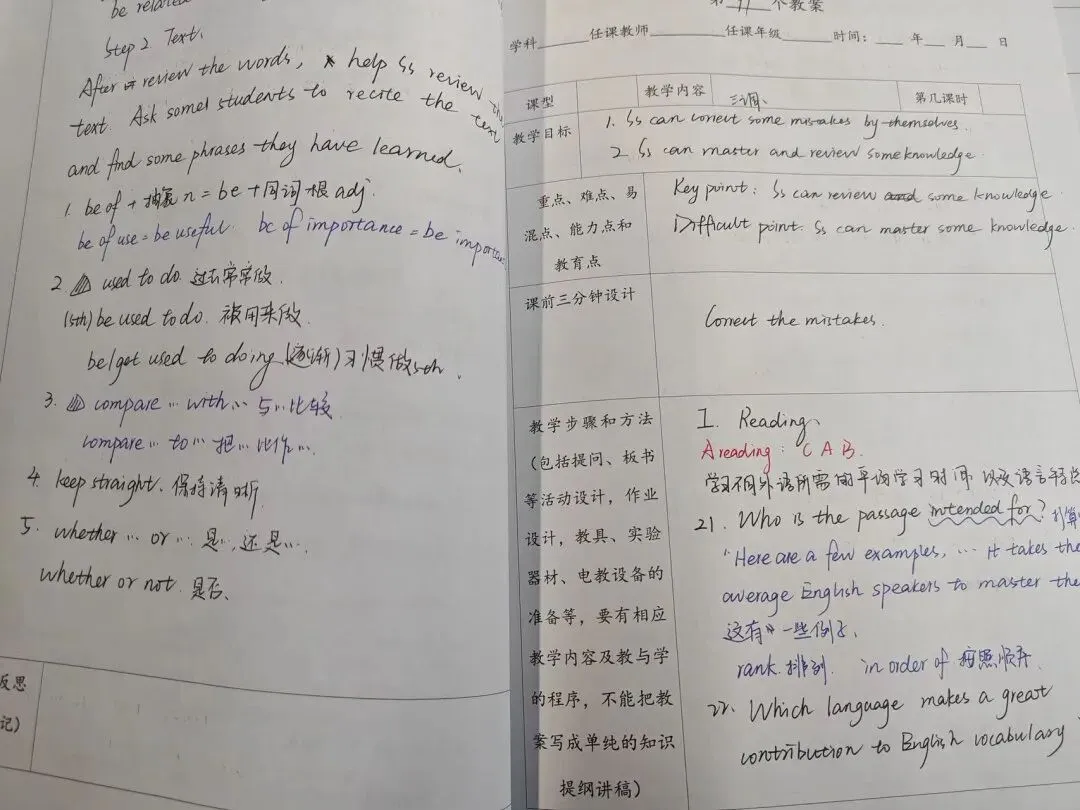 be related
Step 2 Text.
After review the words, help Ss review the
text. Ask some students to recite the text
and find some phrases they have learned.
1. be of + 抽象 n = be + 同词根 adj.
be of use = be useful. be of importance = be importan
2. used to do. 过去常常做.
(sth) be used to do. 被用来做.
be/get used to doing (逐渐) 习惯做sth.
3. compare … with … 与…比较
compare … to … 把…比作….
4. keep straight. 保持清晰
5. whether … or …. 是…, 还是….
whether or not. 是否.
反思
记)
第 个教案
学科 任课教师 任课年级 时间: 年 月 日
课型 教学内容 三调. 第几课时
教学目标
1. Ss can correct some mistakes by themselves.
2. Ss can master and review some knowledge.
重点、难点、易
混点、能力点和
教育点
Key point: Ss can review and some knowledge
Difficult point. Ss can master some knowledge.
课前三分钟设计
Correct the mistakes.
教学步骤和方法
(包括提问、板书
等活动设计,作业
设计,教具、实验
器材、电教设备的
准备等,要有相应
教学内容及教与学
的程序,不能把教
案写成单纯的知识
提纲讲稿)
I. Reading.
A reading: C A B.
学习不同外语所需的平均学习时间 以及语言
21. Who is the passage intended for? 打算
"Here are a few examples, … it takes the
average English speakers to master the
这有 一些例子.
rank. 排列. in order of 按照顺序.
22. Which language makes a great
contribution to English vocabulary